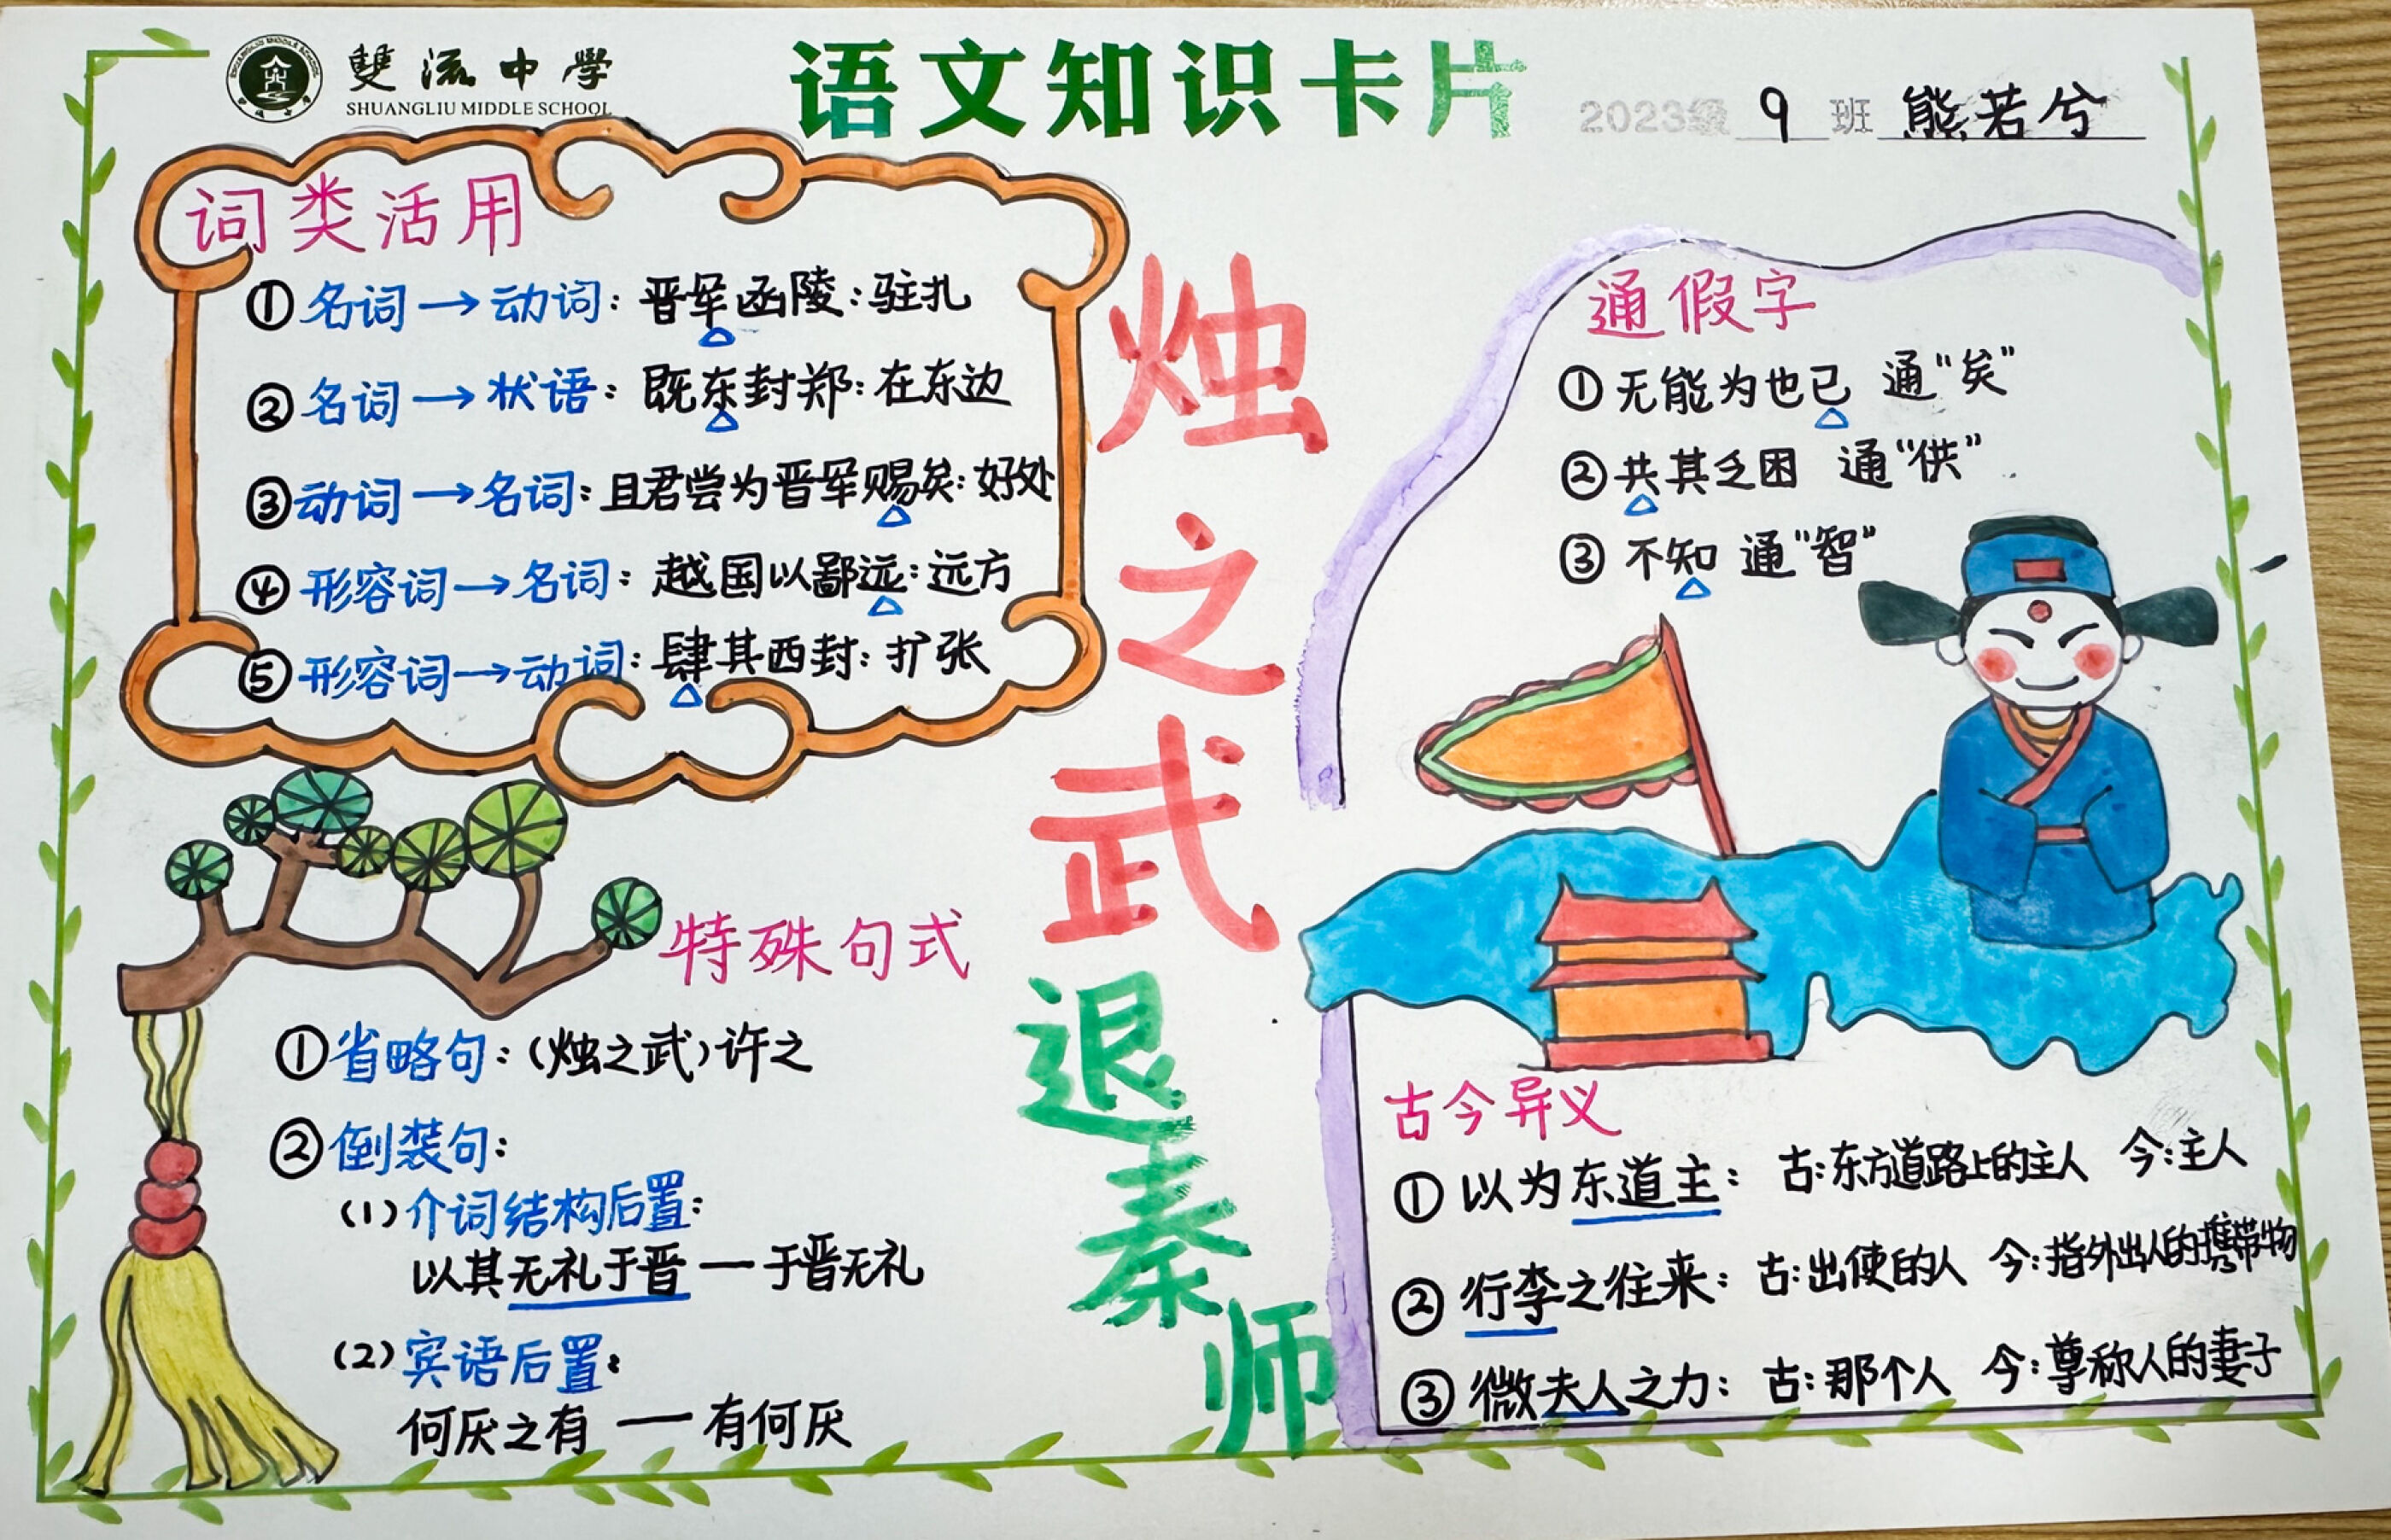 雙流中學
SHUANGLIU MIDDLE SCHOOL
语文知识卡片
2023级 9 班 熊若兮
词类活用
①名词→动词：晋军函陵：驻扎
②名词→状语：既东封郑：在东边
③动词→名词：且君尝为晋军赐矣：好处
④形容词→名词：越国以鄙远：远方
⑤形容词→动词：肆其西封：扩张
烛之武退秦师
通假字
①无能为也已 通“矣”
②共其乏困 通“供”
③不知 通“智”
特殊句式
①省略句：(烛之武)许之
②倒装句：
(1)介词结构后置：
以其无礼于晋—于晋无礼
(2)宾语后置：
何厌之有—有何厌
古今异义
①以为东道主： 古：东方道路上的主人 今：主人
②行李之往来： 古：出使的人 今：指外出人的携带物
③微夫人之力： 古：那个人 今：尊称人的妻子